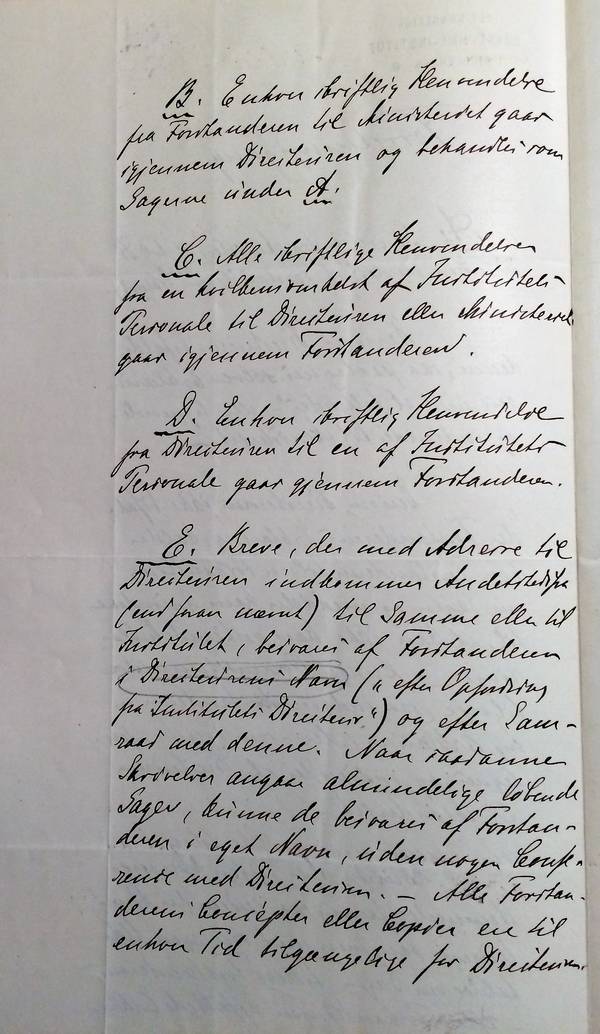 B. Enhver skriftlig Henvendelse
fra Forstanderen til Ministeriet gaar
igjennem Direkteuren og behandles som
Sagerne under A.
C. Alle skriftlige Henvendelser
fra en hvilkensomhelst af Institutets
Personale til Direkteuren eller Ministeriet
gaar igjennem Forstanderen.
D. Enhver skriftlig Henvendelse
fra Direkteuren til en af Institutets
Personale gaar gjennem Forstanderen.
E. Breve, der med Adresse til
Direkteuren indkommer Andetstedsfra
(end foran nævnt) til Samme eller til
Institutet, besvares af Forstanderen
i Direkteurens Navn („efter Opfordring
fra Institutets Direkteur“) og efter Sam-
raad med denne. Naar saadanne
Skrivelser angaar almindelige løbende
Sager, kunne de besvares af Forstan-
deren i eget Navn, uden nogen Confe-
rence med Direkteuren. — Alle Forstan-
derens Concepter eller Copier er til
enhver Tid tilgængelige for Direkteuren.